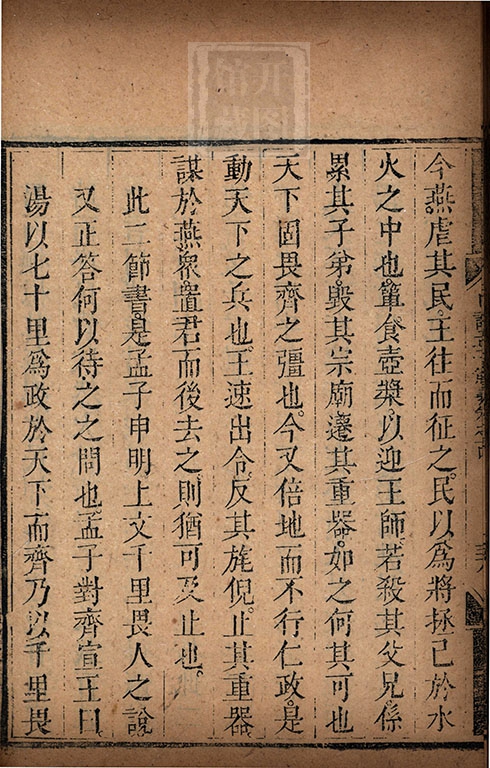 今燕虐其民。王往而征之。民以為將拯己於水
火之中也。簞食壺漿。以迎王師。若殺其父兄。係
累其子弟。毀其宗廟。遷其重器。如之何其可也
天下固畏齊之彊也。今又倍地而不行仁政。是
動天下之兵也。王速出令。反其旄倪。止其重器
謀於燕眾。置君而後去之。則猶可及止也。
此二節書。是孟子申明上文千里畏人之說
又正答何以待之之問也。孟子對齊宣王曰
湯以七十里為政於天下。而齊乃以千里畏